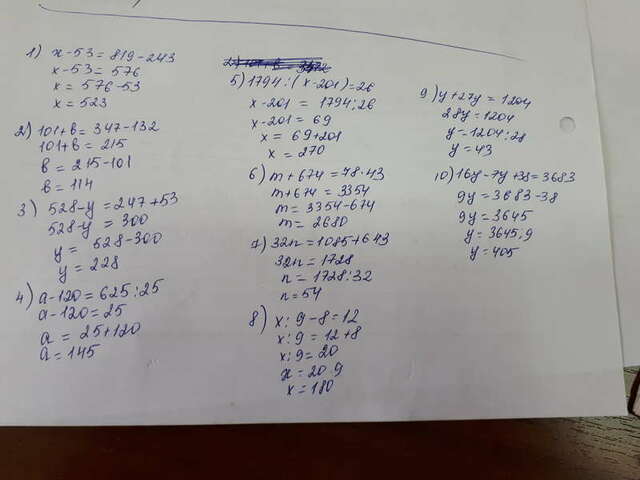 1) x-53=819-243
x-53=576
x=576-53
x=523
2) 101+b=347-132
101+b=215
b=215-101
b=114
3) 528-y=247+53
528-y=300
y=528-300
y=228
4) a-120=625:25
a-120=25
a=25+120
a=145
5) 1794:(x-201)=26
x-201=1794:26
x-201=69
x=69+201
x=270
6) m+674=78·43
m+674=3354
m=3354-674
m=2680
7) 32n=1045+683
32n=1728
n=1728:32
n=54
8) x:9-8=12
x:9=12+8
x:9=20
x=20·9
x=180
9) y+27y=1204
28y=1204
y=1204:28
y=43
10) 16y-7y+38=3683
9y=3683-38
9y=3645
y=3645:9
y=405